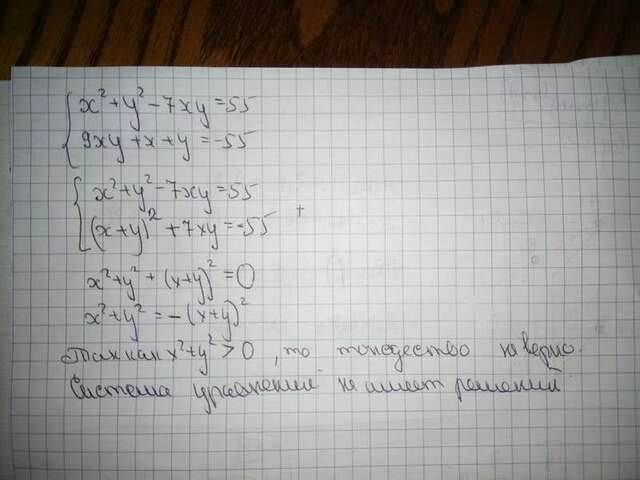 x²+y²-7xy=55
9xy+x+y=-55
x²+y²-7xy=55
(x+y)²+7xy=-55 +
x²+y²+(x+y)²=0
x²+y²=-(x+y)²
Так как x²+y²>0, то тождество не верно.
Система уравнений не имеет решений.